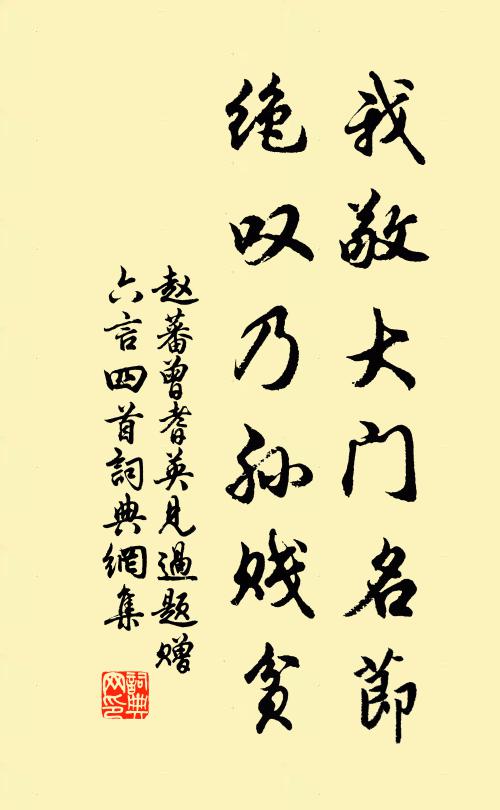 我敬大门名節
绝叹乃孙贱贫
赵蕃曾耆英見過题赠
六言四首詞典網集
詞典
网印